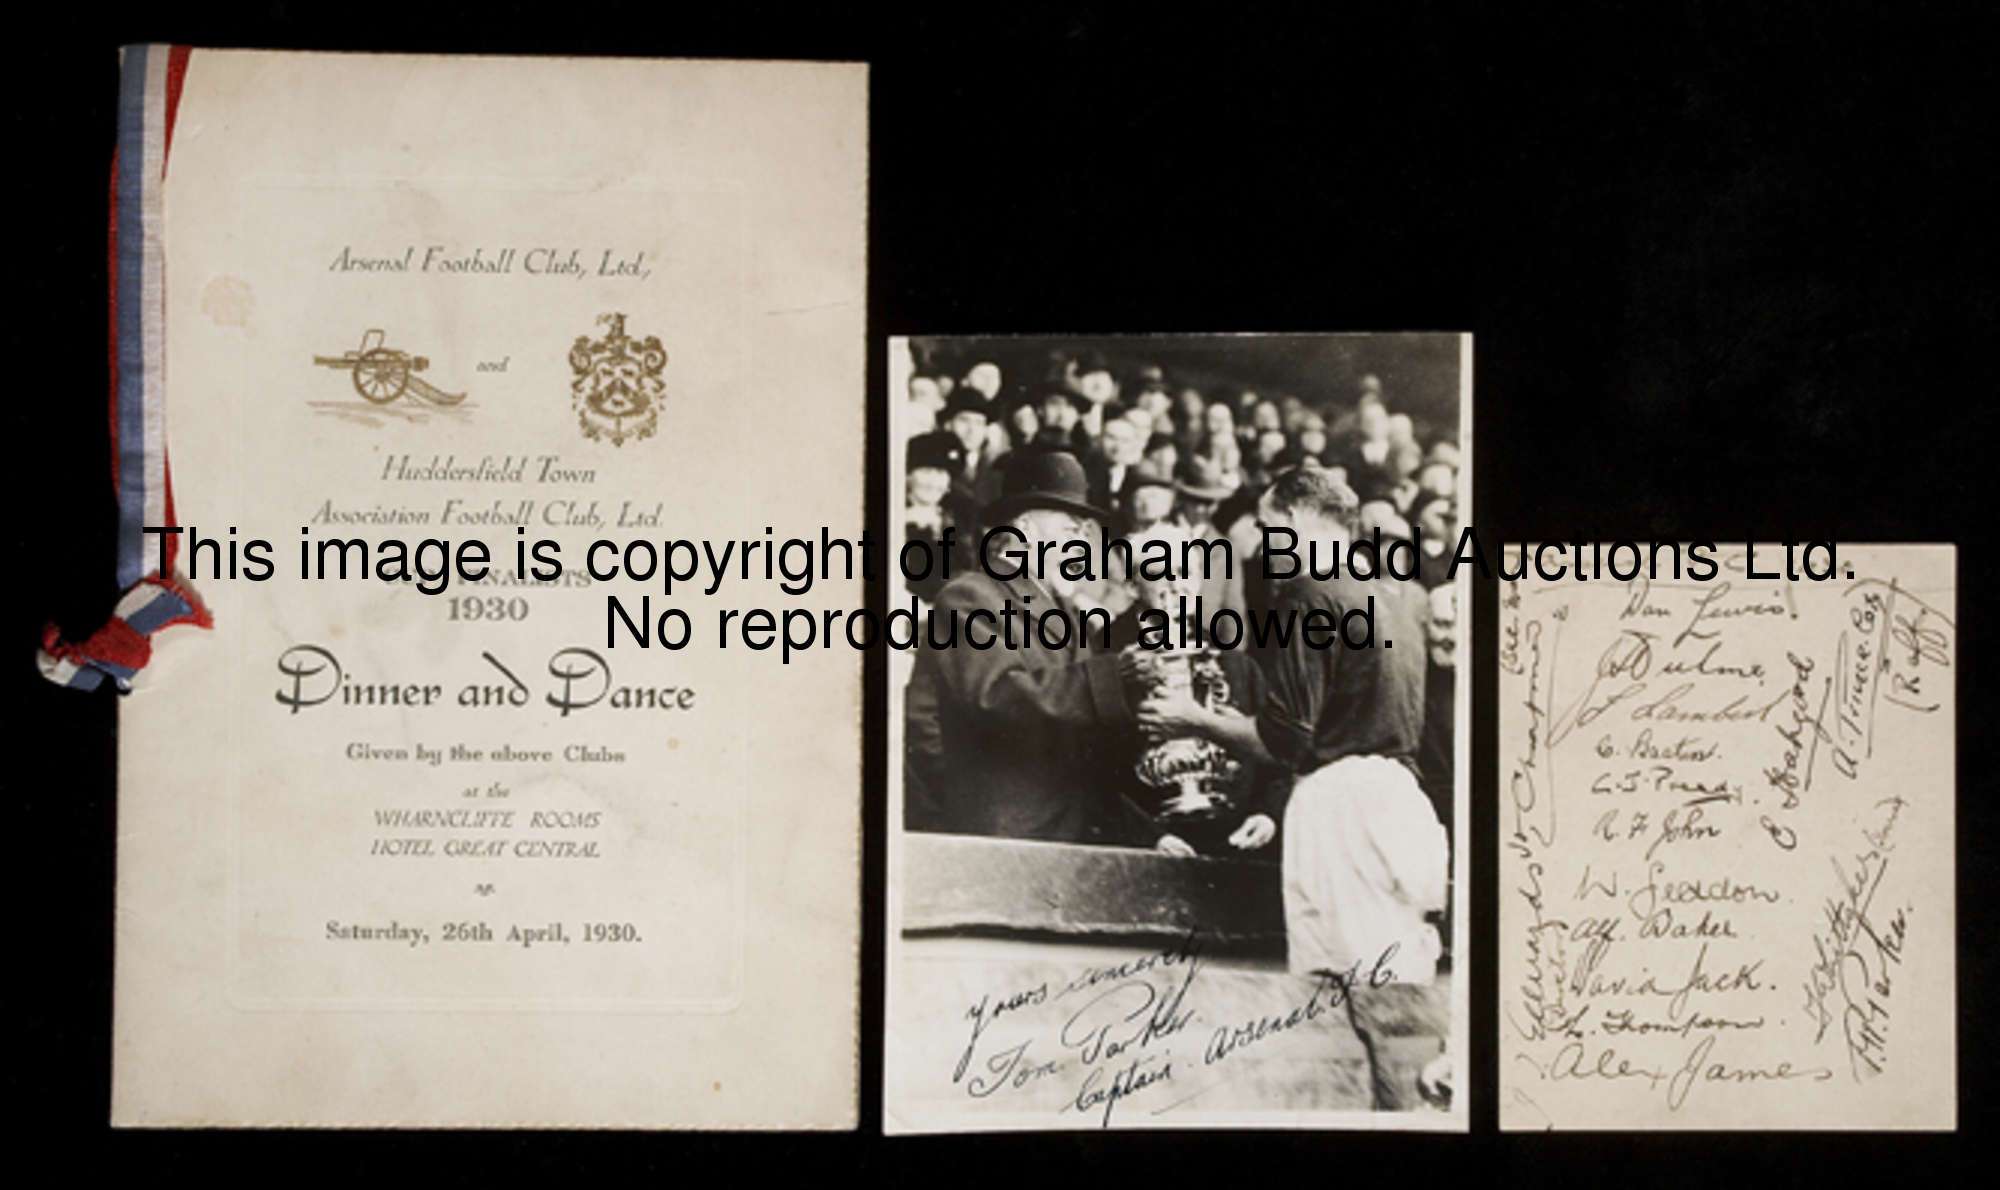 Arsenal Football Club, Ltd.,
and
Huddersfield Town
Association Football Club, Ltd.
FINALISTS
1930
Dinner and Dance
Given by the above Clubs
at the
WHARNCLIFFE ROOMS
HOTEL GREAT CENTRAL
Saturday, 26th April, 1930.
This image is copyright of Graham Budd Auctions Ltd.
No reproduction allowed.
yours sincerely
Tom Parker.
Captain. Arsenal. F.C.
Dan Lewis.
Hulme.
J Lambert
C. Bastin.
C. J. Preedy.
R. F John
W. Seddon.
Alf. Baker.
David Jack.
L. Thompson.
Alex James
E Hapgood
Chapman
(Raffy)